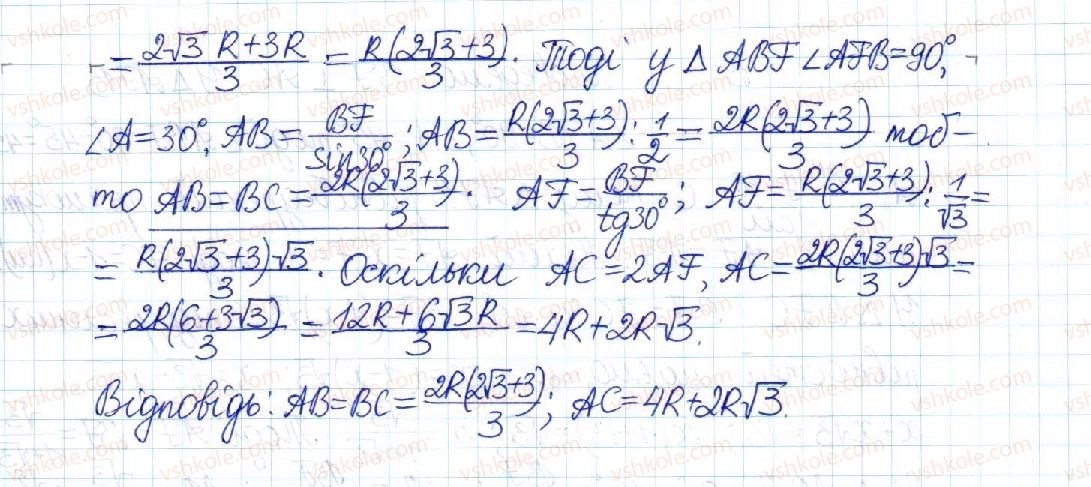 = (2√3 R + 3R)/3 = R(2√3+3)/3. Тоді у △ ABF ∠AFB=90°,
∠A=30°, AB = BF/sin30°; AB = R(2√3+3)/3 : 1/2 = 2R(2√3+3)/3 тоб-
то AB=BC= 2R(2√3+3)/3. AF = BF/tg30°; AF = R(2√3+3)/3 : 1/√3 =
= R(2√3+3)√3/3. Оскільки AC=2AF, AC= 2R(2√3+3)√3/3 =
= 2R(6+3√3)/3 = (12R+6√3R)/3 = 4R+2R√3.
Відповідь: AB=BC= 2R(2√3+3)/3; AC=4R+2R√3.